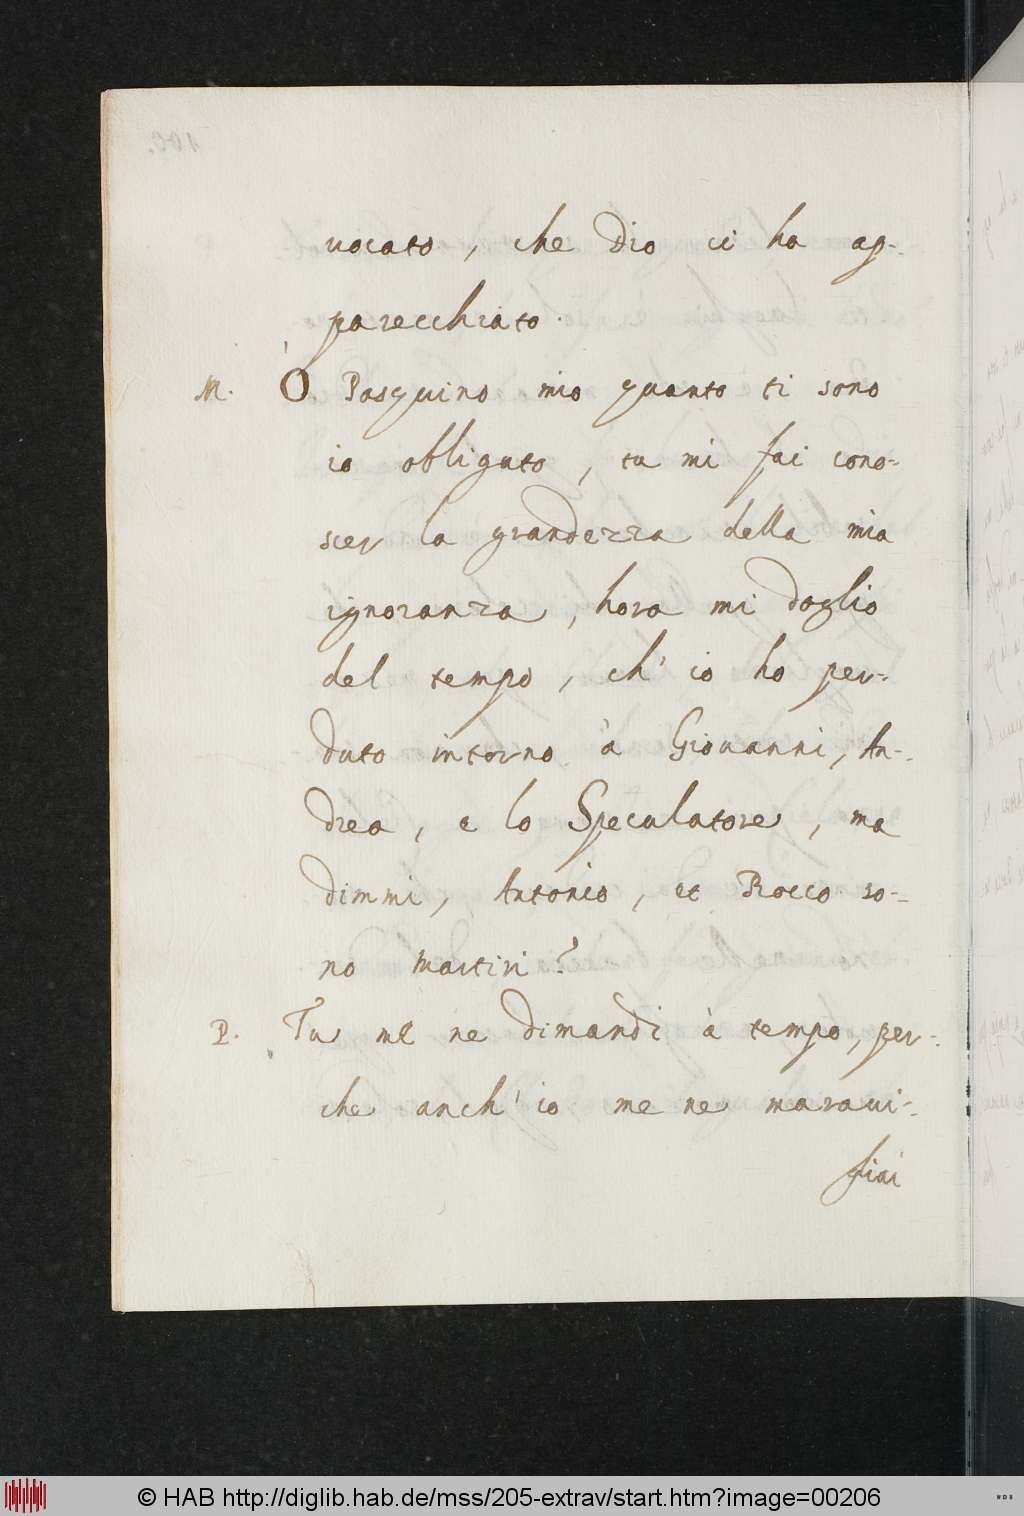 uocato, che Dio ci ha ap-
parecchiato.
M. Ó Pasquino mio quanto ti sono
io obligato, tu mi fai cono-
scer la grandezza della mia
ignoranza, hora mi doglio
del tempo, ch' io ho per-
duto intorno à Giouanni, An-
drea, e lo Speculatore, ma
dimmi, Antonio, et Rocco so-
no martiri?
P. Tu me ne dimandi à tempo, per-
che anch' io me ne maraui-
gliai
© HAB http://diglib.hab.de/mss/205-extrav/start.htm?image=00206